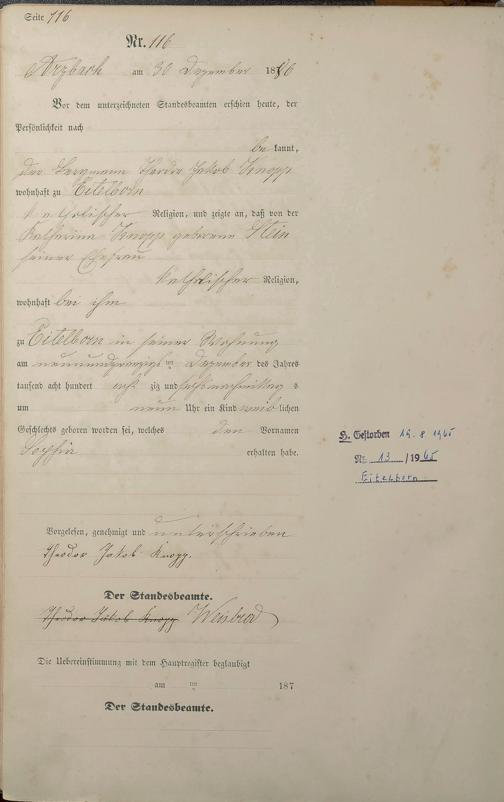 Seite 116
Nr. 116
Arzbach am 30 Dezember 1886
Vor dem unterzeichneten Standesbeamten erschien heute, der
Persönlichkeit nach
be kannt,
der Bergmann Theodor Jakob Knopp
wohnhaft zu Eitelborn
katholischer Religion, und zeigte an, daß von der
Katharina Knopp geborene Stein
seiner Ehefrau
katholischer Religion,
wohnhaft bei ihm
zu Eitelborn in seiner Wohnung
am neunundzwanzigsten Dezember des Jahres
tausend acht hundert acht zig und sechs nachmittag s
um neun Uhr ein Kind weib lichen
Geschlechts geboren worden sei, welches den Vornamen
Sophia erhalten habe.
H. Gestorben 15. 8. 1965
Nr. 13 / 1965
Eitelborn
Vorgelesen, genehmigt und unterschrieben
Theodor Jakob Knopp.
Der Standesbeamte.
Theodor Jakob Knopp Weisbrod
Die Uebereinstimmung mit dem Hauptregister beglaubigt
am ten 187
Der Standesbeamte.